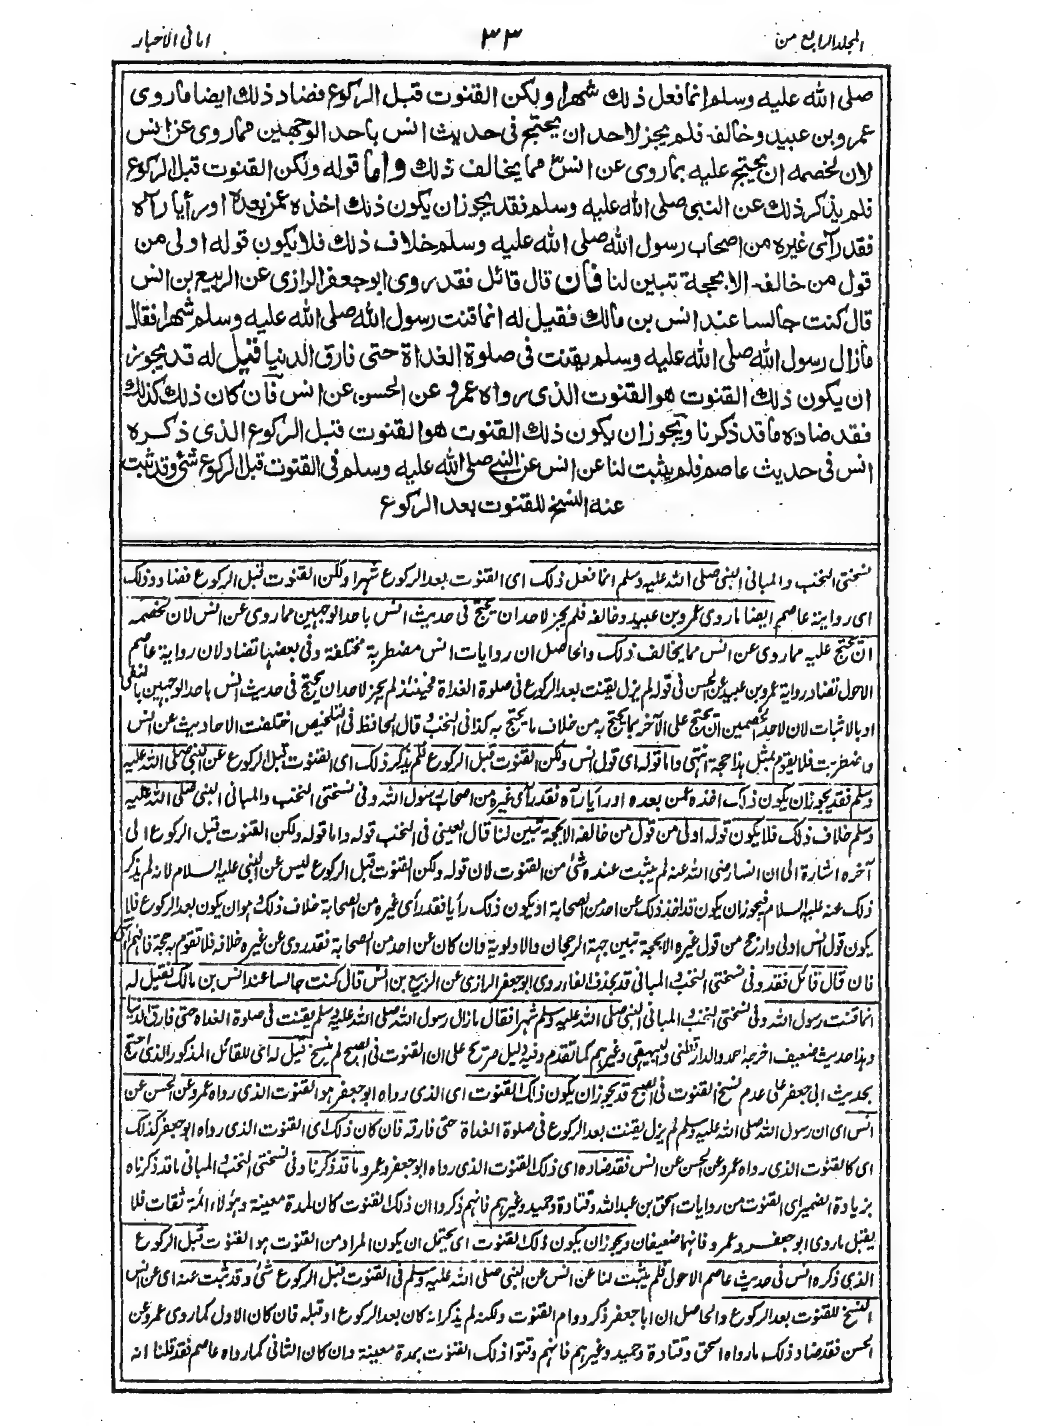 المجلد الرابع من
٣٣
امانی الاخبار
صلی الله علیه وسلم انما فعل ذلك شهرا ولكن القنوت قبل الركوع فضاد ذلك ایضا ما روی
عمرو بن عبید وخالفه فلم یجز لاحد ان یحتج فی حدیث انس باحد الوجهین مما روی عن انس
لان لخصمه ان یحتج علیه بما روی عن انس مما یخالف ذلك واما قوله ولكن القنوت قبل الركوع
فلم یذكر ذلك عن النبی صلی الله علیه وسلم فقد یجوز ان یكون ذلك اخذه عمن بعده او رأیا رآه
فقد رأی غیره من اصحاب رسول الله صلی الله علیه وسلم خلاف ذلك فلا یكون قوله اولی من
قول من خالفه الا بحجة تتبین لنا فان قال قائل فقد روی ابو جعفر الرازی عن الربیع بن انس
قال كنت جالسا عند انس بن مالك فقیل له انما قنت رسول الله صلی الله علیه وسلم شهرا فقال
ما زال رسول الله صلی الله علیه وسلم یقنت فی صلوة الغداة حتی فارق الدنیا قیل له قد یجوز
ان یكون ذلك القنوت هو القنوت الذی رواه عمرو عن الحسن عن انس فان كان ذلك كذلك
فقد ضاده ما قد ذكرنا ویجوز ان یكون ذلك القنوت هو القنوت قبل الركوع الذی ذكره
انس فی حدیث عاصم فلم یثبت لنا عن انس عن النبی صلی الله علیه وسلم فی القنوت قبل الركوع شئ وقد ثبت
عنه النسخ للقنوت بعد الركوع
نسختی النخب والمبانی النبی صلی الله علیه وسلم انما فعل ذلك ای القنوت بعد الركوع شهرا ولكن القنوت قبل الركوع فضاد ذلك
ای روایة عاصم ایضا ما روی عمرو بن عبید وخالفه فلم یجز لاحد ان یحتج فی حدیث انس باحد الوجهین مما روی عن انس لان لخصمه
ان یحتج علیه مما روی عن انس مما یخالف ذلك والحاصل ان روایات انس مضطربة مختلفة وفی بعضها تضاد لان روایة عاصم
الاحول تضاد روایة عمرو بن عبید عن الحسن فی قوله لم یزل یقنت بعد الركوع فی صلوة الغداة فحینئذ لم یجز لاحد ان یحتج فی حدیث انس باحد الوجهین بالنفی
او بالاثبات لان لاحد الخصمین ان یحتج علی الآخر بما یحتج به من خلاف ما یحتج به كذا فی النخب قال الحافظ فی التلخیص اختلفت الاحادیث عن انس
واضطربت فلا یقوم بمثل هذا حجة انتهی واما قوله ای قول انس ولكن القنوت قبل الركوع فلم یذكر ذلك ای القنوت قبل الركوع عن النبی صلی الله علیه
وسلم فقد یجوز ان یكون ذلك اخذه عمن بعده او رأیا رآه فقد رأی غیره من اصحاب رسول الله وفی نسختی النخب والمبانی النبی صلی الله علیه
وسلم خلاف ذلك فلا یكون قوله اولی من قول من خالفه الا بحجة تتبین لنا قال العینی فی النخب قوله واما قوله ولكن القنوت قبل الركوع الی
آخره اشارة الی ان انسا رضی الله عنه لم یثبت عنده شئ من القنوت لان قوله ولكن القنوت قبل الركوع لیس عن النبی علیه السلام لانه لم یذكر
ذلك عنه علیه السلام فیجوز ان یكون قد اخذ ذلك عن احد من الصحابة او یكون ذلك رأیا فقد رأی غیره من الصحابة خلاف ذلك وهو ان یكون بعد الركوع فلا
یكون قول انس اولی وارجح من قول غیره الا بحجة تبین جهة الرجحان والاولویة وان كان عن احد من الصحابة فقد روی عن غیره خلافه فلا تقوم به حجة فافهم انتهی
فان قال قائل فقد وفی نسختی النخب والمبانی قد بحذف الفاء روی ابو جعفر الرازی عن الربیع بن انس قال كنت جالسا عند انس بن مالك فقیل له
انما قنت رسول الله وفی نسختی النخب والمبانی النبی صلی الله علیه وسلم شهرا فقال ما زال رسول الله صلی الله علیه وسلم یقنت فی صلوة الغداة حتی فارق الدنیا
وهذا حدیث ضعیف اخرجه احمد والدارقطنی والبیهقی وغیرهم كما تقدم وفیه دلیل صریح علی ان القنوت فی الصبح لم ینسخ قیل له ای للقائل المذكور الذی احتج
بحدیث ابی جعفر علی عدم نسخ القنوت فی الصبح قد یجوز ان یكون ذلك القنوت ای الذی رواه ابو جعفر هو القنوت الذی رواه عمرو عن الحسن عن
انس ای ان رسول الله صلی الله علیه وسلم لم یزل یقنت بعد الركوع فی صلوة الغداة حتی فارقه فان كان ذلك ای القنوت الذی رواه ابو جعفر كذلك
ای كالقنوت الذی رواه عمرو عن الحسن عن انس فقد ضاده ای ذلك القنوت الذی رواه ابو جعفر وعمرو ما قد ذكرنا وفی نسختی النخب والمبانی ما قد ذكرناه
بزیادة الضمیر ای القنوت من روایات اسحق بن عبد الله وقتادة وحمید وغیرهم فانهم ذكروا ان ذلك القنوت كان لمدة معینة وهؤلاء ائمة ثقات فلا
یقبل ما روی ابو جعفر وعمرو فانهما ضعیفان ویجوز ان یكون ذلك القنوت ای یحتمل ان یكون المراد من القنوت هو القنوت قبل الركوع
الذی ذكره انس فی حدیث عاصم الاحول فلم یثبت لنا عن انس عن النبی صلی الله علیه وسلم فی القنوت قبل الركوع شئ وقد ثبت عنه ای عن انس
النسخ للقنوت بعد الركوع والحاصل ان ابا جعفر ذكر دوام القنوت ولكنه لم یذكر انه كان بعد الركوع او قبله فان كان الاول كما روی عمرو عن
الحسن فقد ضاد ذلك ما رواه اسحق وقتادة وحمید وغیرهم فانهم وقتوا ذلك القنوت بمدة معینة وان كان الثانی كما رواه عاصم فقد قلنا انه